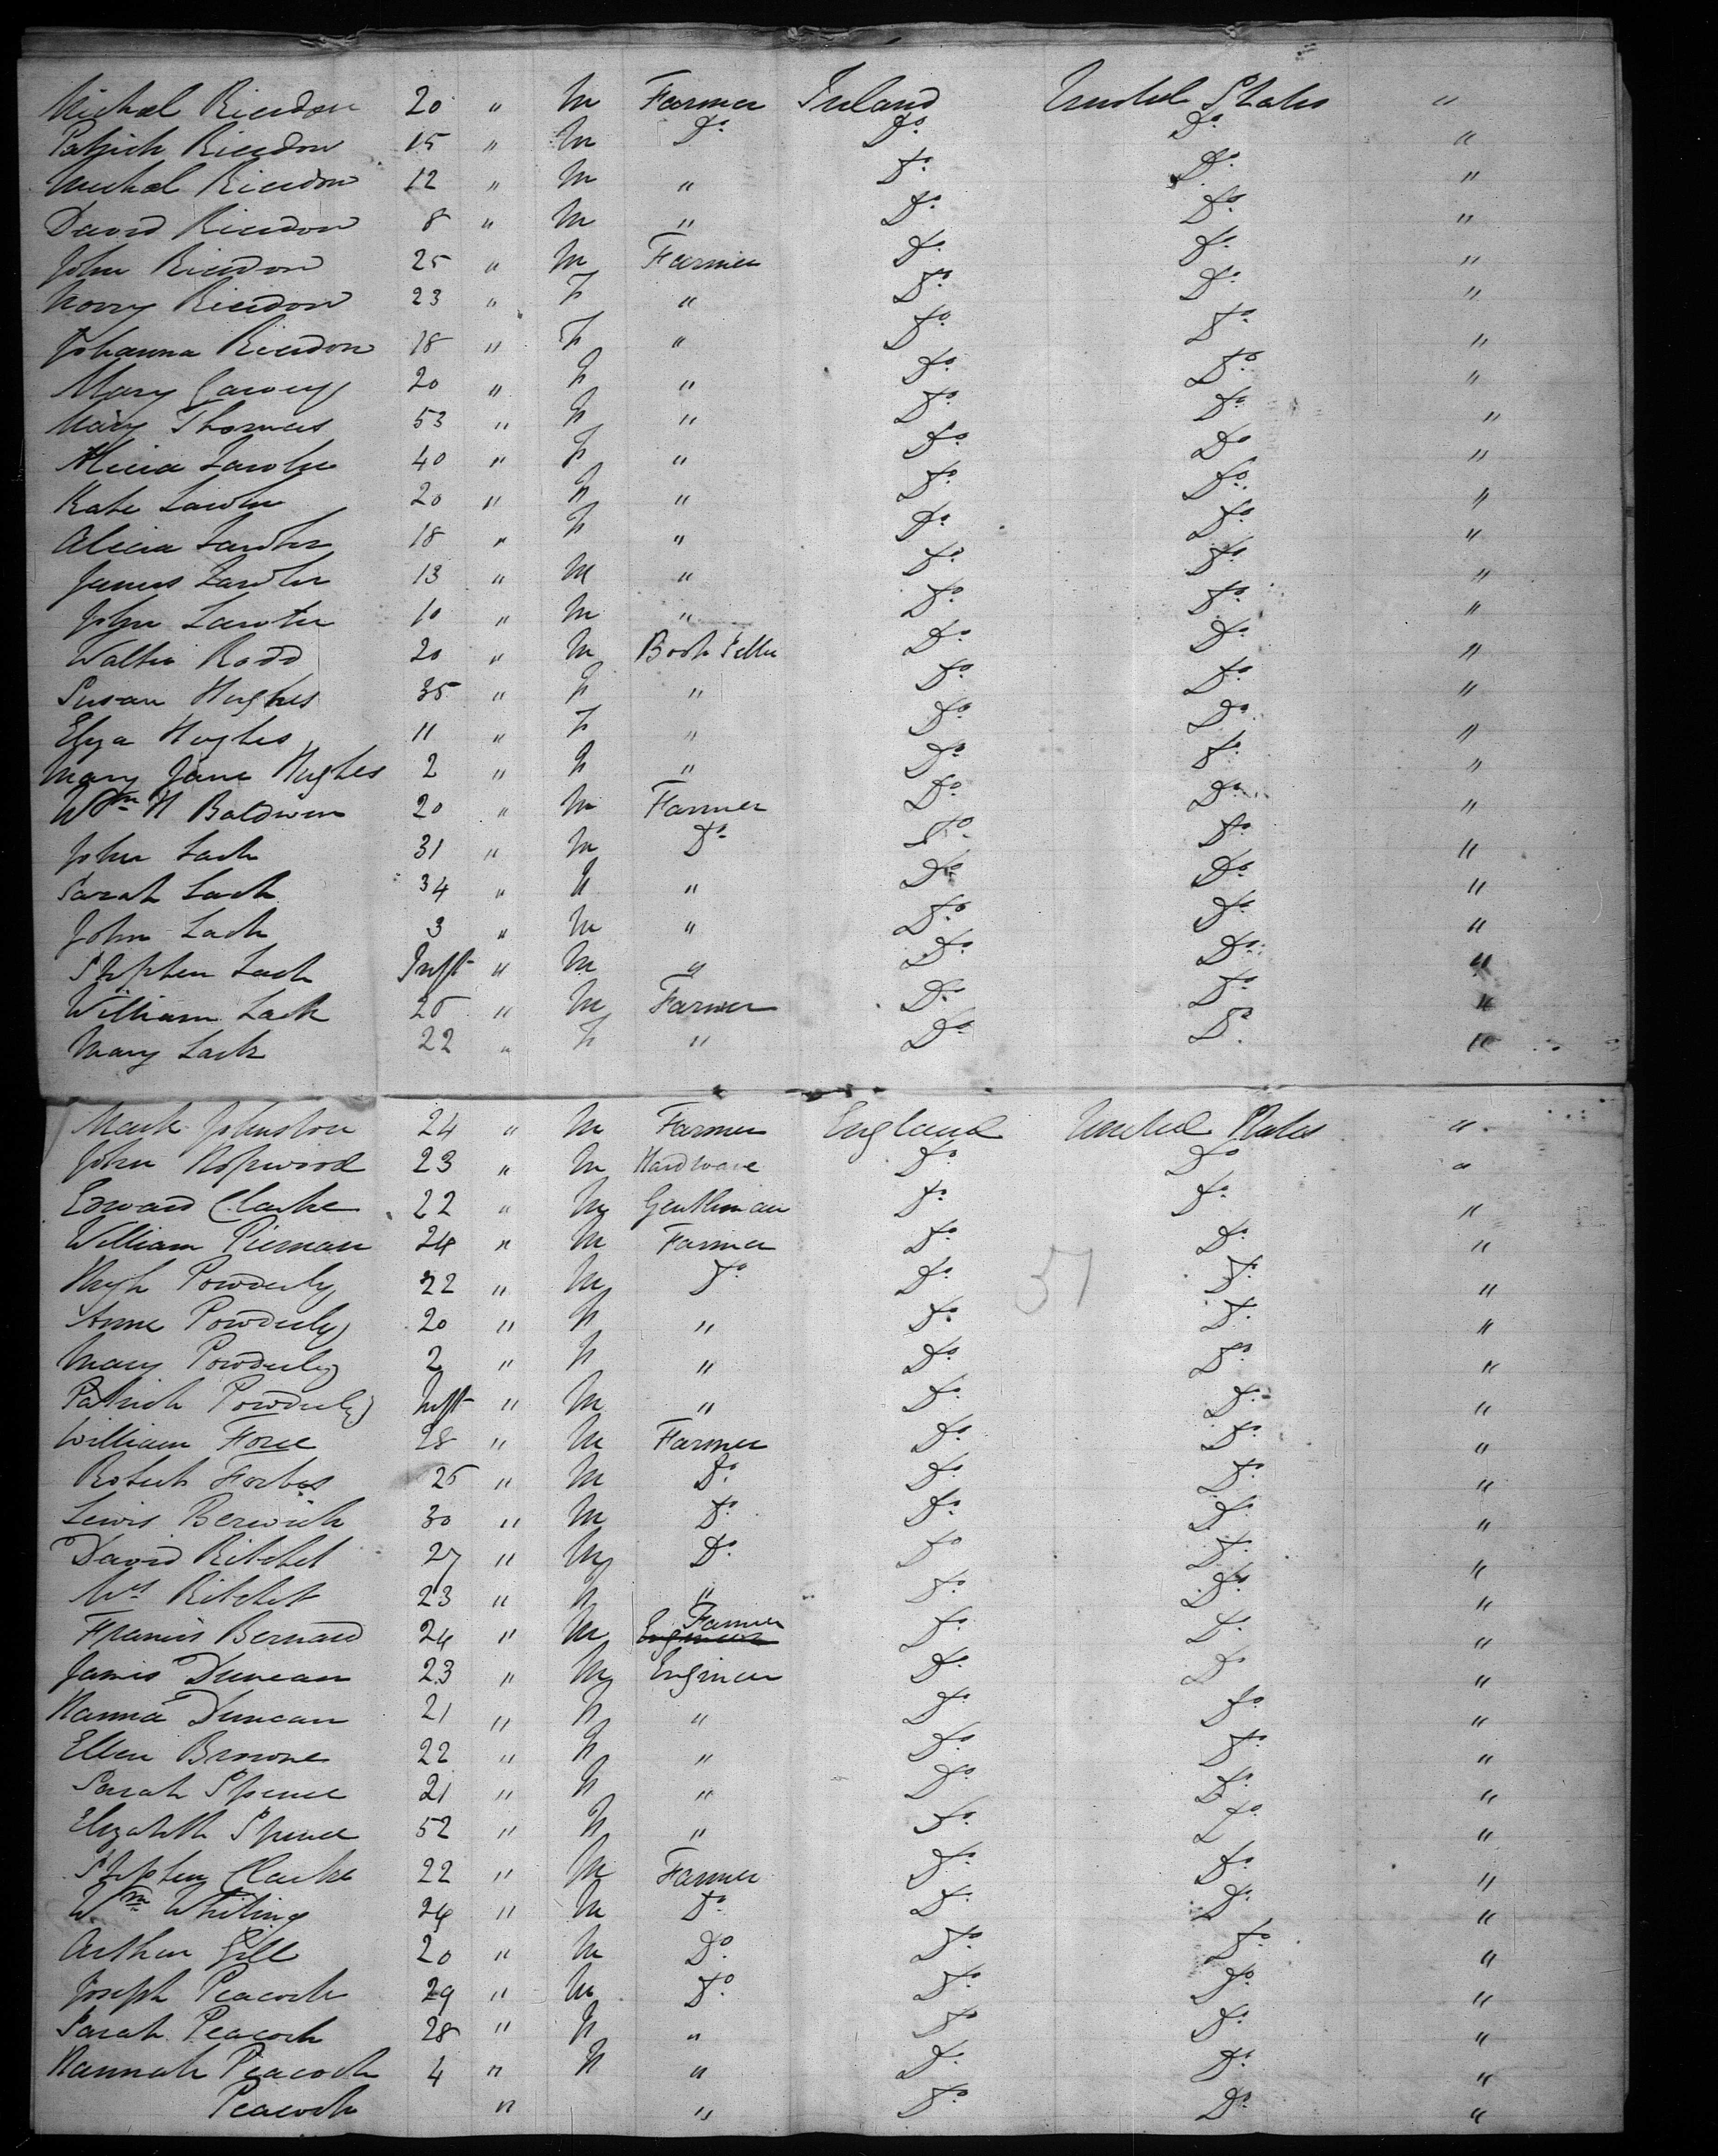 Michael Rierdon 20 " M Farmer Ireland United States "
Patrick Rierdon 15 " M Do Do Do "
Michael Rierdon 12 " M " Do Do "
David Rierdon 8 " M " Do Do "
John Rierdon 25 " M Farmer Do Do "
Norry Rierdon 23 " F " Do Do "
Johanna Rierdon 18 " F " Do Do "
Mary 20 " F " Do Do "
Mary Thomas 53 " F " Do Do "
Alicia Lawler 40 " F " Do Do "
Kate Lawler 20 " F " Do Do "
Alicia Lawler 18 " F " Do Do "
James Lawler 13 " M " Do Do "
John Lawler 10 " M " Do Do "
Walter Rodd 20 " M Book Seller Do Do "
Susan Hughes 35 " F " Do Do "
Eliza Hughes 11 " F " Do Do "
Mary Jane Hughes 2 " F " Do Do "
Wm H Baldwin 20 " M Farmer Do Do "
John Lack 31 " M Do Do Do "
Sarah Lack 34 " F " Do Do "
John Lack 3 " M " Do Do "
Stephen Lack Inft " M " Do Do "
William Lack " M Farmer Do Do "
Mary Lack 22 " F " Do Do "
Mark Johnston 24 " M Farmer England United States "
John Hopwood 23 " M Hardware Do Do "
Edward Clarke 22 " M Gentleman Do Do "
William Pierman 24 " M Farmer Do Do "
Hugh Powderly 22 " M Do Do Do "
57
Anne Powderly 20 " F " Do Do "
Mary Powderly 2 " F " Do Do "
Patrick Powderly Inft " M " Do Do "
William Force 28 " M Farmer Do Do "
Robert Forbes 25 " M Do Do Do "
Lewis Berwick 30 " M Do Do Do "
David Ritchet 27 " M Do Do Do "
Mrs Ritchet 23 " F " Do Do "
Francis Bernard 24 " M Engineer Farmer Do Do "
James Duncan 23 " M Engineer Do Do "
Hanna Duncan 21 " F " Do Do "
Ellen Browne 22 " F " Do Do "
Sarah Spence 21 " F " Do Do "
Elizabeth Spence 52 " F " Do Do "
Stephen Clarke 22 " M Farmer Do Do "
Wm Whiting 24 " M Do Do Do "
Arthur Gill 20 " M Do Do Do "
Joseph Peacock 29 " M Do Do Do "
Sarah Peacock 28 " F " Do Do "
Hannah Peacock 4 " F " Do Do "
Peacock " " Do Do "